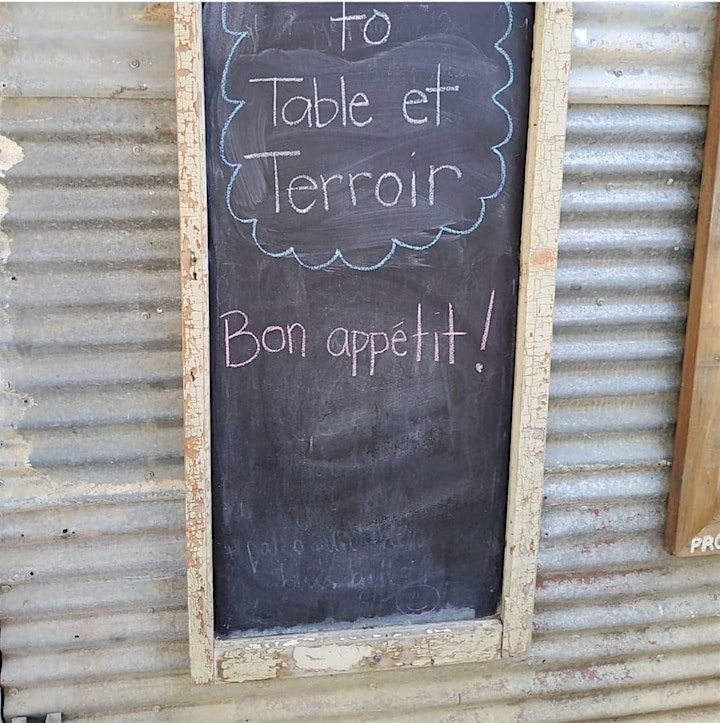 to
Table et
Terroir
Bon appétit!
PRO